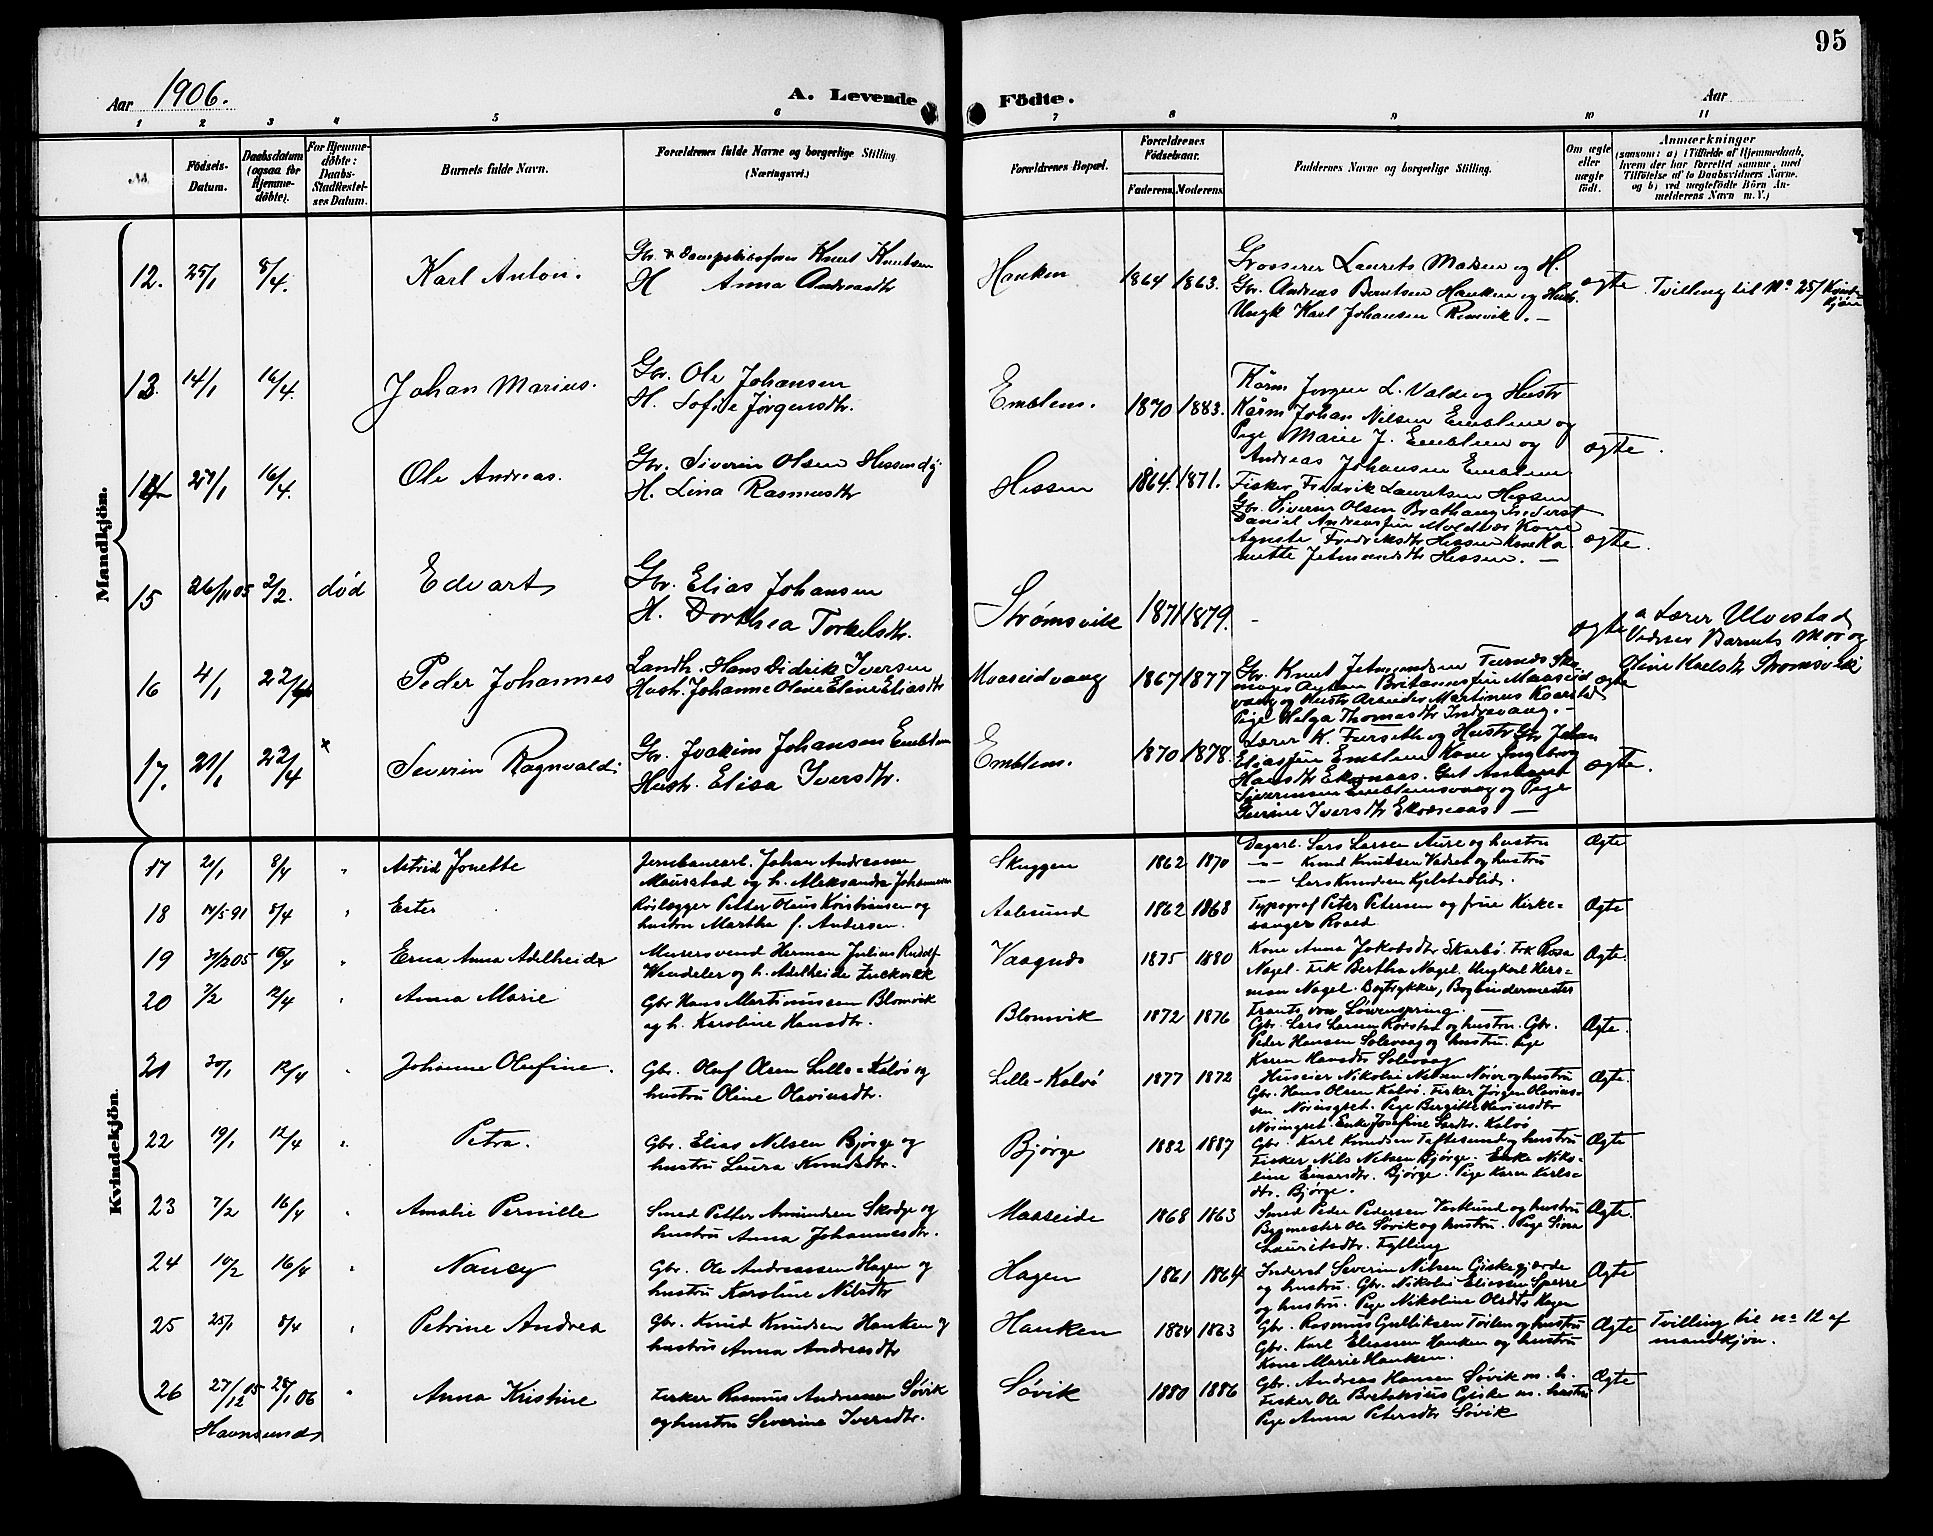 95
Aar 1906.
A. Levende Födte.
Aar
1 2 3 4 5 6 7 8 9 10 11
№.
Födsels-Datum.
Daabsdatum (ogsaa for Hjemmedöbte).
For Hjemmedöbte: Daabs-Stadfæstelses Datum.
Barnets fulde Navn.
Forældrenes fulde Navne og borgerlige Stilling (Næringsvei).
Forældrenes Bopæl.
Forældrenes Födselsaar.
Faderens. Moderens.
Faddernes Navne og borgerlige Stilling.
Om ægte eller uægte födt.
Anmærkninger
(saasom: a) i Tilfælde af Hjemmedaab, hvem der har forrettet samme, med Tilföielse af to Daabsvidners Navne, og b) ved uægtefödte Börn Anmelderens Navn m. V.)
Mandkjön.
12. 25/1 8/4. Karl Anton.
Gbr. & Dampskibsfører Knut Knutsen
H Anna Andreasdtr
Hanken 1864 1863.
Grosserer Laurits Madsen og H.
Gbr. Andreas Berntsen Hanken og Hustr.
Ungk Karl Johansen Remvik. —
ægte Tvilling til No 25/ Kvindekjøn
13. 14/1 16/4. Johan Marius.
Gbr. Ole Johansen
H. Sofie Jørgensdtr.
Emblem. 1870 1883.
Kårm Jørgen L. Valde og Hustr
Kårm Johan Nilsen Emblem og
Pige Marie J. Emblem og
Andreas Johansen Emblem
ægte.
14 27/1 16/4. Ole Andreas.
Gbr. Siverin Olsen Hessen
H. Lina Rasmusdtr
Hessen 1864. 1871.
Fisker Fredrik Lauritsen Hessen
Gbr. Siverin Olsen Brathaug
Daniel Andreassen Moldvær Kone
Agnete Fredriksdtr Hessen Kone Ka-
nutte Jetmundsdtr Hessen. —
ægte.
15 26/11 05 2/2. død Edvart
Gbr. Elias Johansen
H. Dorthea Torkelsdtr.
Strømsvik 1871 1879. -
ægte
a Lærer Ulvestad
Vidner Barnets Mor og
Oline Karlsdtr Strømsvik
16 4/1 22/4 Peder Johannes
Landh. Hans Didrik Iversen
Hustr. Johanne Oline Eline Eliasdtr
Maaseidvaag 1867 1877
Gbr. Knut Jetmundsen
Maaseid
vaag og Hustr Martinus Kaarstad
Pige Helga Thomasdtr Indrevaag. —
ægte
17. 21/1 22/4 x Severin Ragnvald
Gbr. Joakim Johansen Emblem
Hustr. Elisa Iversdtr.
Emblem. 1870 1878.
Lærer K. Furseth og Hustr Gbr Johan
Eliassen Emblem Kone Ingeborg
Hansdtr Ekornaas.
Siverinsen Emblemsvaag og Pige
Iversdtr Ekornaas —
ægte.
Kvindekjön.
17 21/1 8/4 " Astrid Jonette
Jernbanearb. Johan Andreassen
Maurstad og h. Aleksandra Johannessen
Skuggen 1862 1870
Dagarb. Lars Larsen Aure og hustru
—"— Knud Knutsen Vadset og hustru
—"— Lars Knudsen Kjelstadlid.
Ægte
18 14/5 91 8/4 " Ester
Rørlægger Petter Olaus Kristiansen og
hustru Marthe f. Andersen.
Aalesund 1862 1868
Typograf Peter Petersen og frue Kirke-
sanger Roald
Ægte
19 31/3 05 16/4 " Erna Anna Adelheide
Murersvend Herman Julius Rudolf
Windeler og h. Adelheide
Vaagnæs 1875 1880
Kone Anna Jakobsdtr Skarbø. Frk Rosa
Nagel. Frk Bertha Nagel. Ungkarl Her-
man Nagel. Bogtrykker, Bogbindermester
Frants von Löwenspring. —
Ægte.
20 7/2 12/4 " Anna Marie
Gbr Hans Martinussen Blomvik
og h. Karoline Hansdtr.
Blomvik 1872 1876
Gbr. Lars Larsen Rørstad og hustru. Gbr.
Peder Hansen Solevaag og hustru. Pige
Karen Hansdtr Solevaag
Ægte.
21 30/1 12/4 " Johanne Olufine.
Gbr. Oluf Olsen Lille-Kalvø og
hustru Oline Oleviusdtr.
Lille-Kalvø 1877 1872
Huseier Nikolai Nelsen Nørve og hustru
Gbr. Hans Olsen Kalvø. Fisker Jörgen Olevius-
sen Nöringset. Pige Bergitte Oleviusdtr
Nöringset. Enke Josefine Larsdtr. Kalvö
Ægte.
22 19/1 12/4 " Petra.
Gbr. Elias Nilsen Bjørge og
hustru Laura Knudsdtr.
Bjørge 1882 1887
Gbr. Karl Knudsen Toftesund og hustru
Fisker Nils Nelsen Bjørge. Enke Niko-
line Einarsdtr. Bjørge. Pige Karen Karls-
dtr. Bjørge.
Ægte
23 7/2 16/4 " Amalie Pernille
Smed Petter Amundsen Skodje og
hustru Anna Johannesdtr.
Maaseide 1868 1863
Smed Peder Pedersen Vestlund og hustru
Bygmester Ole Søvik og hustru. Pige Sina
Lauritsdtr. Fylling
Ægte.
24 10/2 16/4 " Nancy
Gbr. Ole Andreassen Hagen og
hustru Karoline Nilsdtr
Hagen 1861 1864
Inderst Severin Nilsen Giskegjærde
og hustru. Gbr. Nikolai Eliassen Sperre
og hustru. Pige Nikoline Olsdtr Hagen
Ægte
25 25/1 8/4 " Petrine Andrea
Gbr. Knud Knudsen Hanken og
hustru Anna Andreasdtr
Hanken 1864 1863
Gbr. Rasmus Gulliksen og hustru
Gbr. Karl Eliassen Hanken og hustru
Kone Marie Hanken.
Ægte
Tvilling til no 12 af
mandkjøn.
26 27/12 05 28/1 06 " Anna Kristine
Fisker Rasmus Andreassen Søvik
og hustru Severine Iversdtr.
Søvik 1880 1886
Gbr. Andreas Hansen Søvik m. h.
Fisker Ole Bretevius Giske m. hustru
Pige Anna Petersdtr Søvik
Ægte
Havnsund